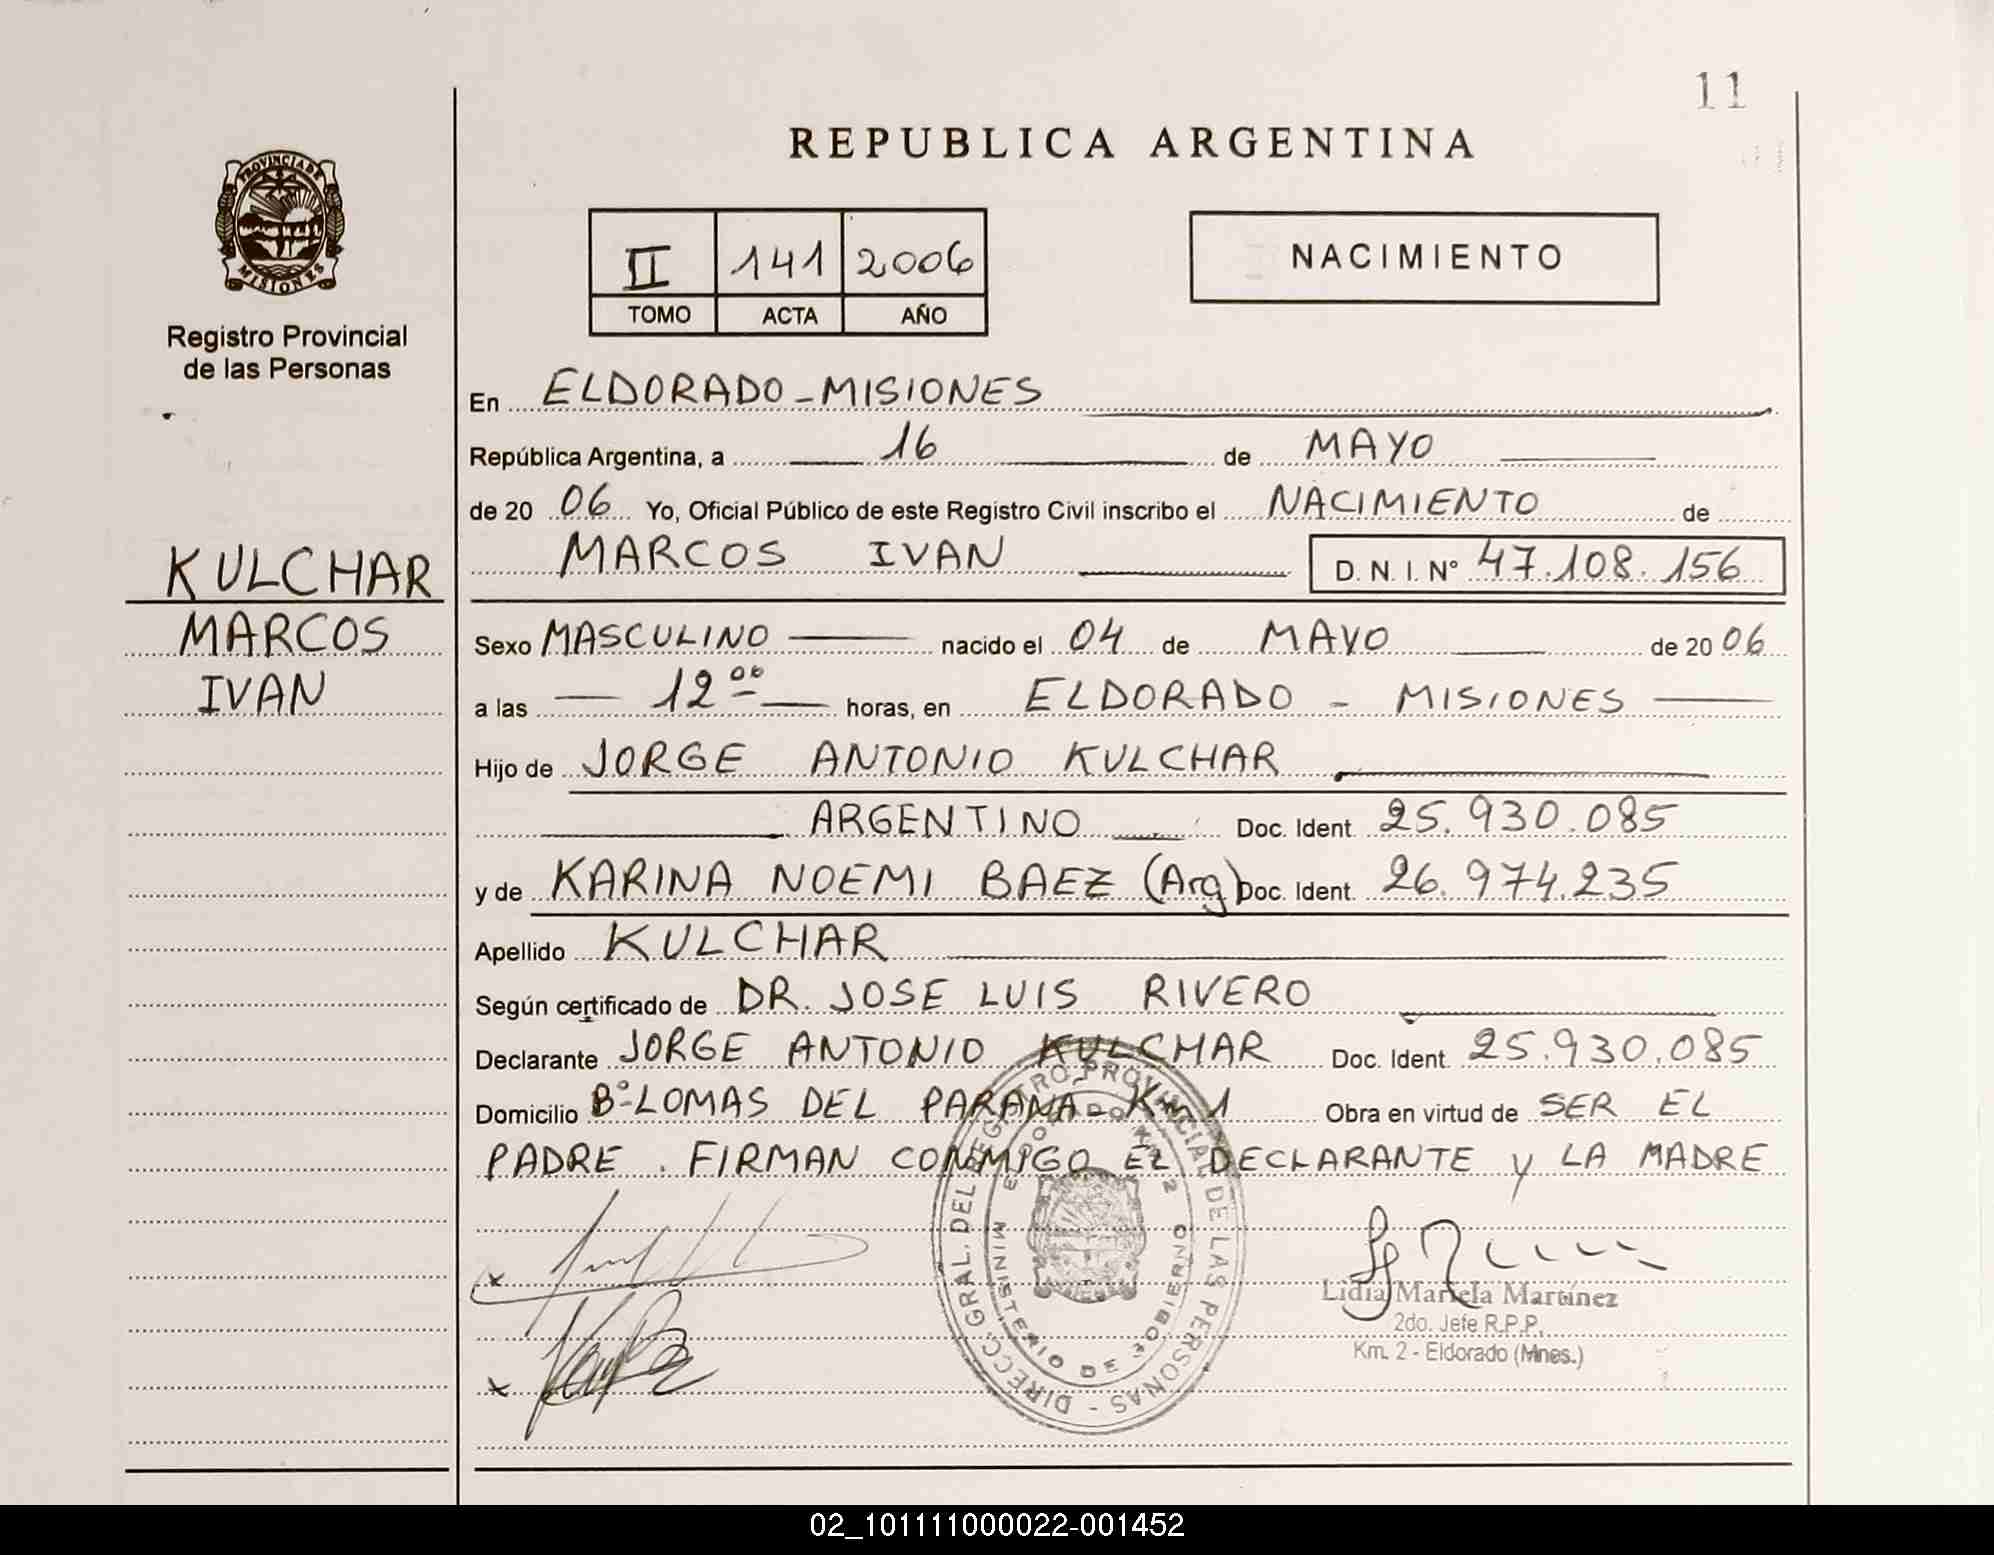 11
REPUBLICA ARGENTINA
PROVINCIA DE
MISIONES
Registro Provincial
de las Personas
II 141 2006
TOMO ACTA AÑO
NACIMIENTO
En ELDORADO-MISIONES
República Argentina, a 16 de MAYO
de 20 06 Yo, Oficial Público de este Registro Civil inscribo el NACIMIENTO de
MARCOS IVAN D. N. I. Nº 47.108.156
KULCHAR
MARCOS
IVAN
Sexo MASCULINO nacido el 04 de MAYO de 20 06
a las 12 00 horas, en ELDORADO - MISIONES
Hijo de JORGE ANTONIO KULCHAR
ARGENTINO Doc. Ident 25.930.085
y de KARINA NOEMI BAEZ (Arg) Doc. Ident. 26.974.235
Apellido KULCHAR
Según certificado de DR. JOSE LUIS RIVERO
Declarante JORGE ANTONIO KULCHAR Doc. Ident. 25.930.085
Domicilio Bº-LOMAS DEL PARANA- Km 1 Obra en virtud de SER EL
PADRE. FIRMAN CONMIGO EL DECLARANTE Y LA MADRE
DIRECC. GRAL. DEL REGISTRO PROVINCIAL DE LAS PERSONAS -
MINISTERIO DE GOBIERNO
ELDORADO KM. 2
Lidia Mariela Martínez
2do. Jefe R.P.P.
Km. 2 - Eldorado (Mnes.)
02_101111000022-001452